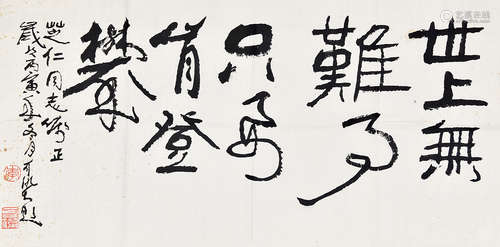 世上無
難事
只要
肯登
攀
芝仁同志俯正
歲次丙寅年